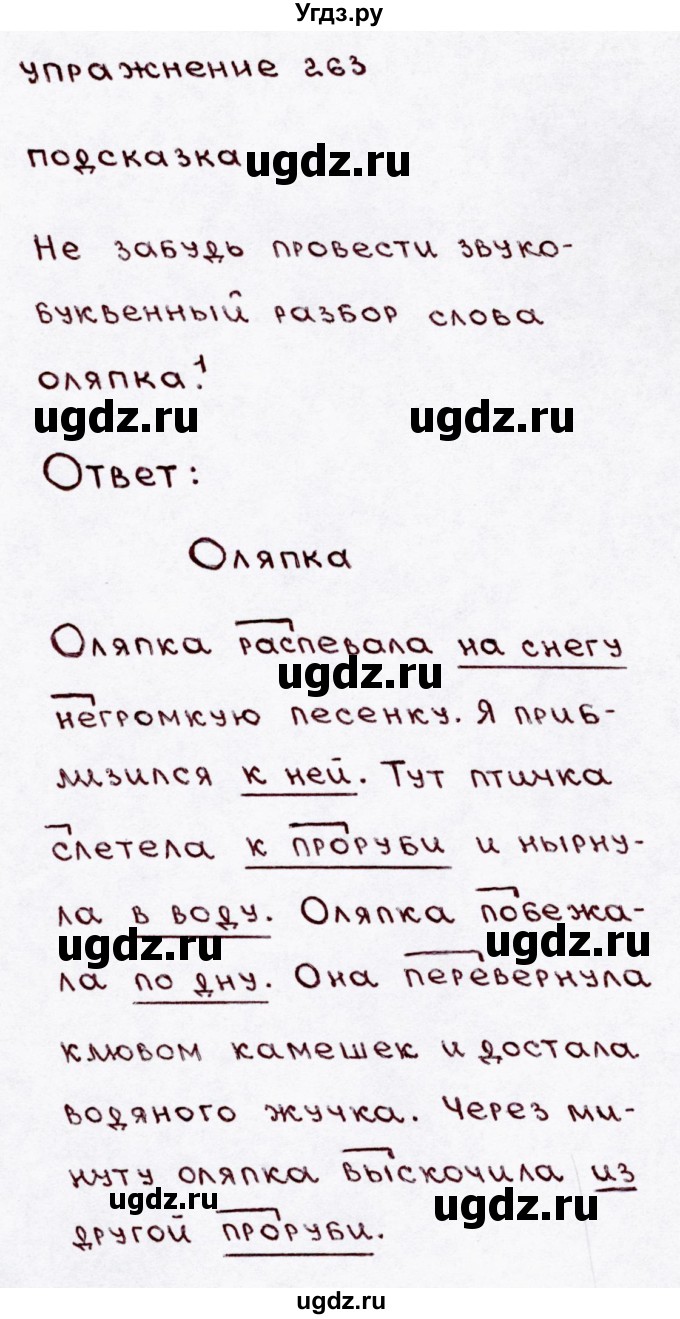 Угдз.ру
упражнение 263
подсказка ugdz.ru
Не забудь провести звуко-
буквенный разбор слова
оляпка!¹
ugdz.ru ugdz.ru
Ответ:
Оляпка
Оляпка распевала на снегу
ugdz.ru
негромкую песенку. Я приб-
лизился к ней. Тут птичка
слетела к проруби и нырну-
ла в воду. Оляпка побежа-
ugdz.ru ugdz.ru
ла по дну. Она перевернула
клювом камешек и достала
водяного жучка. Через ми-
нуту оляпка выскочила из
ugdz.ru ugdz.ru
другой проруби.
ugdz.ru